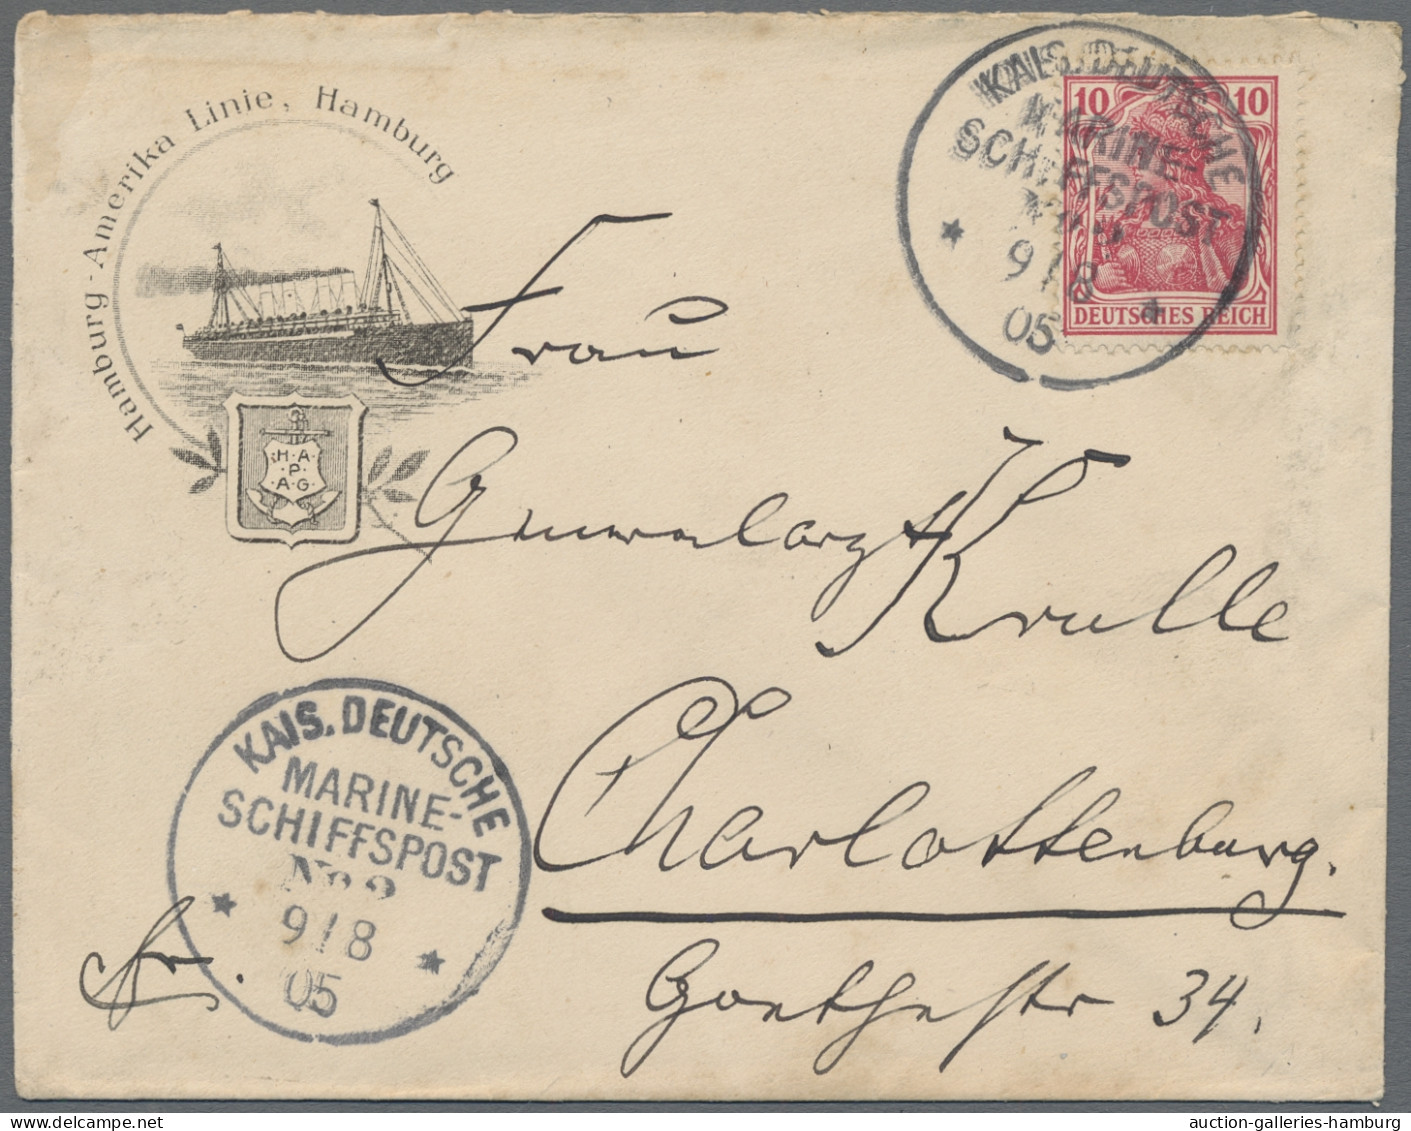 Hamburg-Amerika Linie, Hamburg
H.A.
P.
A.G.
KAIS. DEUTSCHE
MARINE-
SCHIFFSPOST
9/8
05
10 10
DEUTSCHES REICH
Frau
Generalarzt Krulle
Charlottenburg.
Goethestr 34.
Fr.
KAIS. DEUTSCHE
MARINE-
SCHIFFSPOST
No
9/8
05
auction-galleries-hamburg